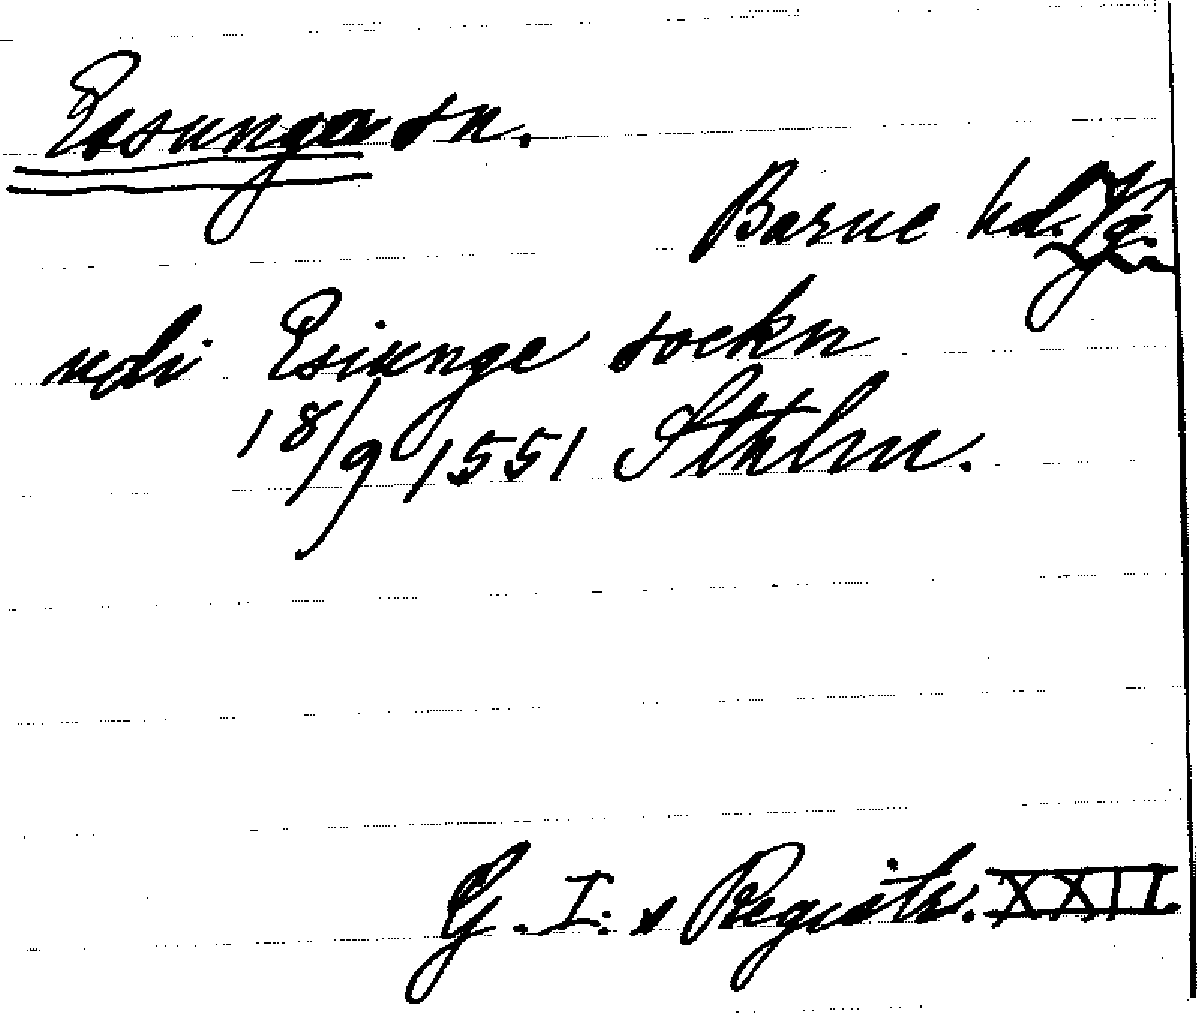 Essunga sn.
Barne hd. Vg.
udi Esiunge sockn
18/9 1551 Sthlm.
G. I:s Registr. XXII.